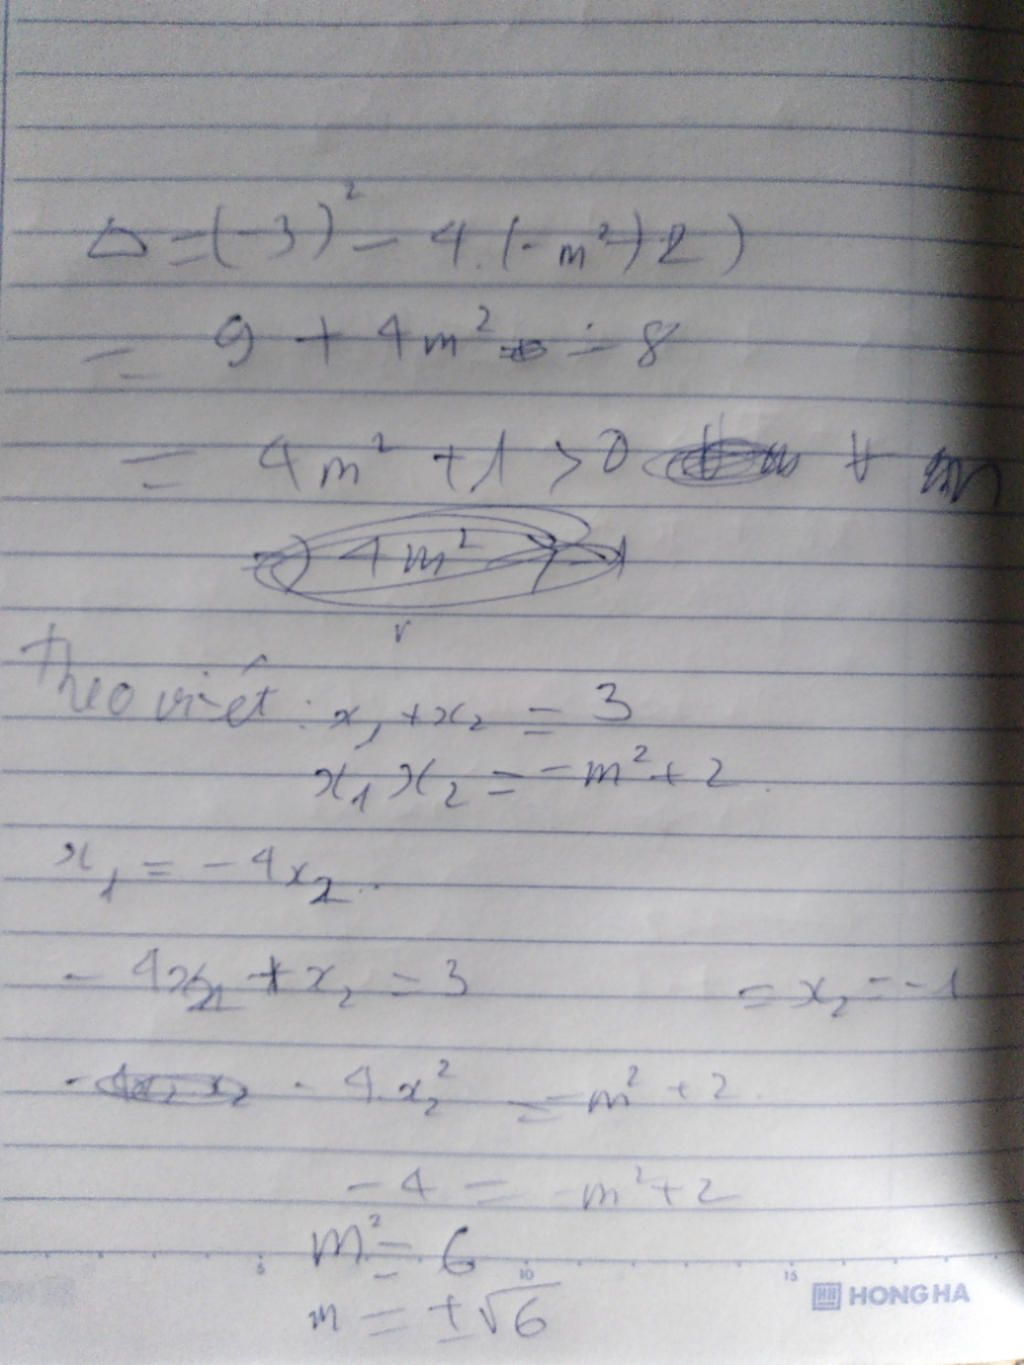 Δ = (-3)² - 4.(-m²+2)
= 9 + 4m² - 8
= 4m² + 1 > 0 ∀ m
4m²
Theo viét: x₁ + x₂ = 3
x₁ x₂ = -m² + 2
x₁ = -4x₂
- 4x₂ + x₂ = 3 = x₂ = -1
- 4.x₂² = -m² + 2
-4 = -m² + 2
m² = 6
5 10 15
HONG HA
m = ±√6